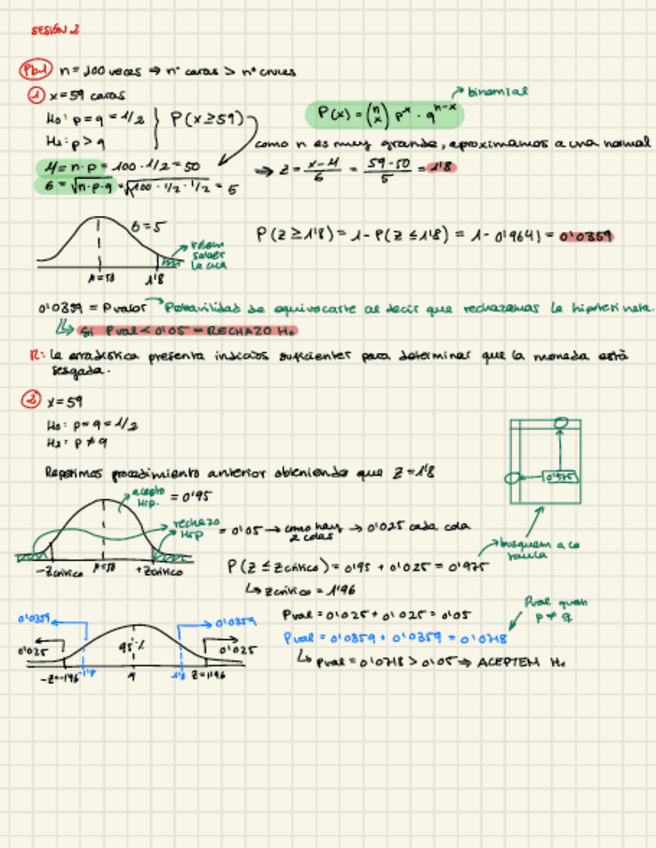 SESIÓN 2
Pb.1 n = 100 veces ⇒ nº caras > nº cruces
① x = 59 caras
H₀: p = q = 1/2
H₁: p > q
P(x ≥ 59)
P(x) = (n x) pˣ · qⁿ⁻ˣ
binomial
como n es muy grande, aproximamos a una normal
μ = n · p = 100 · 1/2 = 50
σ = √n·p·q = √100 · 1/2 · 1/2 = 5
⇒ z = x-μ/σ = 59-50/5 = 1'8
σ = 5
μ = 50
1'8
volem saber la cua
P(Z ≥ 1'8) = 1 - P(Z ≤ 1'8) = 1 - 0'9641 = 0'0359
0'0359 = Pvalor → Probabilidad de equivocarte al decir que rechazamos la hipótesi nula.
↳ Si Pval < 0'05 = RECHAZO H₀
R: la estadística presenta indicios suficientes para determinar que la moneda está
sesgada.
② x = 59
H₀: p = q = 1/2
H₁: p ≠ q
Repetimos procedimiento anterior obteniendo que Z = 1'8
acepto Hip. = 0'95
rechazo Hip = 0'05 → como hay 2 colas → 0'025 cada cola
-Zcrítico
μ = 50
+Zcrítico
0'975
busquem a la taula
P(Z ≤ Zcrítico) = 0'95 + 0'025 = 0'975
↳ Zcrítico = 1'96
Pval = 0'025 + 0'025 = 0'05
Pval = 0'0359 + 0'0359 = 0'0718
Pval quan p ≠ q
↳ Pval = 0'0718 > 0'05 ⇒ ACEPTEM H₀
0'0359
0'0359
0'025
95%
0'025
-Z=-1'96
-1'8
1'8
Z=1'96